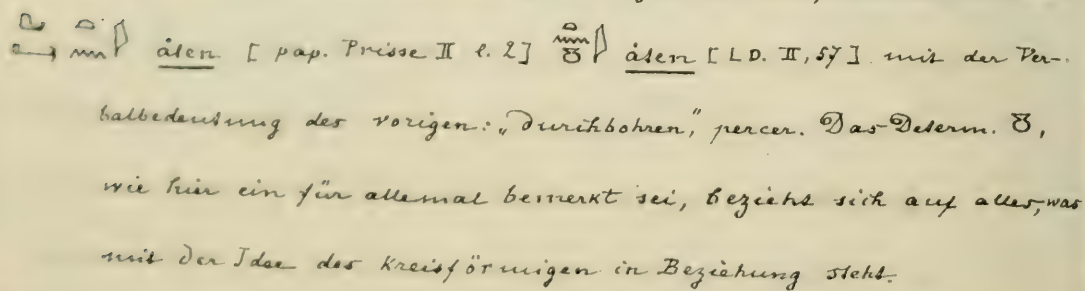 åten [pap. Prisse II l. 2] åten [LD. II, 57] mit der Ver-
balbedeutung des vorigen: „durchbohren," percer. Das Determ.
wie hier ein für allemal bemerkt sei, bezieht sich auf alles, was
mit der Idee des Kreisförmigen in Beziehung steht.